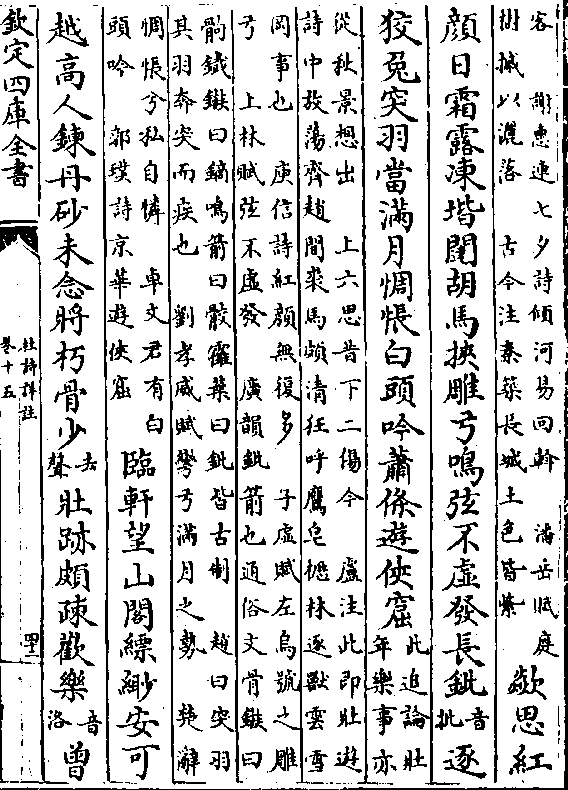 客　謝惠連七夕詩傾河易回斡　潘岳賦庭
樹槭以灑落　古今注秦築長城土色皆紫
歘思紅
顔日霜露凍堦闥胡馬挾雕弓鳴弦不虚發長鈚音批逐
狡兔突羽當滿月惆悵白頭吟蕭條遊俠窟
此追論壯
年樂事亦
從秋景想出　上六思昔下二傷今　盧注此即壯遊
詩中放蕩齊趙間裘馬頗清狂呼鷹皂櫪林逐獸雲雪
岡事也　庾信詩紅顔無復多　子虚賦左烏號之雕
弓　上林賦弦不虚發　廣韻鈚箭也通俗文骨鏃曰
骲鐵鏃曰鏑鳴箭曰骹霍葉曰鈚皆古制　趙曰突羽
其羽奔突而疾也　劉孝威賦彎弓滿月之勢　楚辭
惆悵兮私自憐　卓文君有白
頭吟　郭璞詩京華遊俠窟
臨軒望山閣縹緲安可
越高人鍊丹砂未念將朽骨少去聲壯跡頗疎歡樂音洛曾
欽定四庫全書
杜詩詳註
卷十五